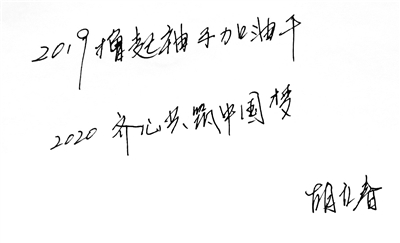 2019撸起袖子加油干
2020 齐心共筑中国梦
胡立春